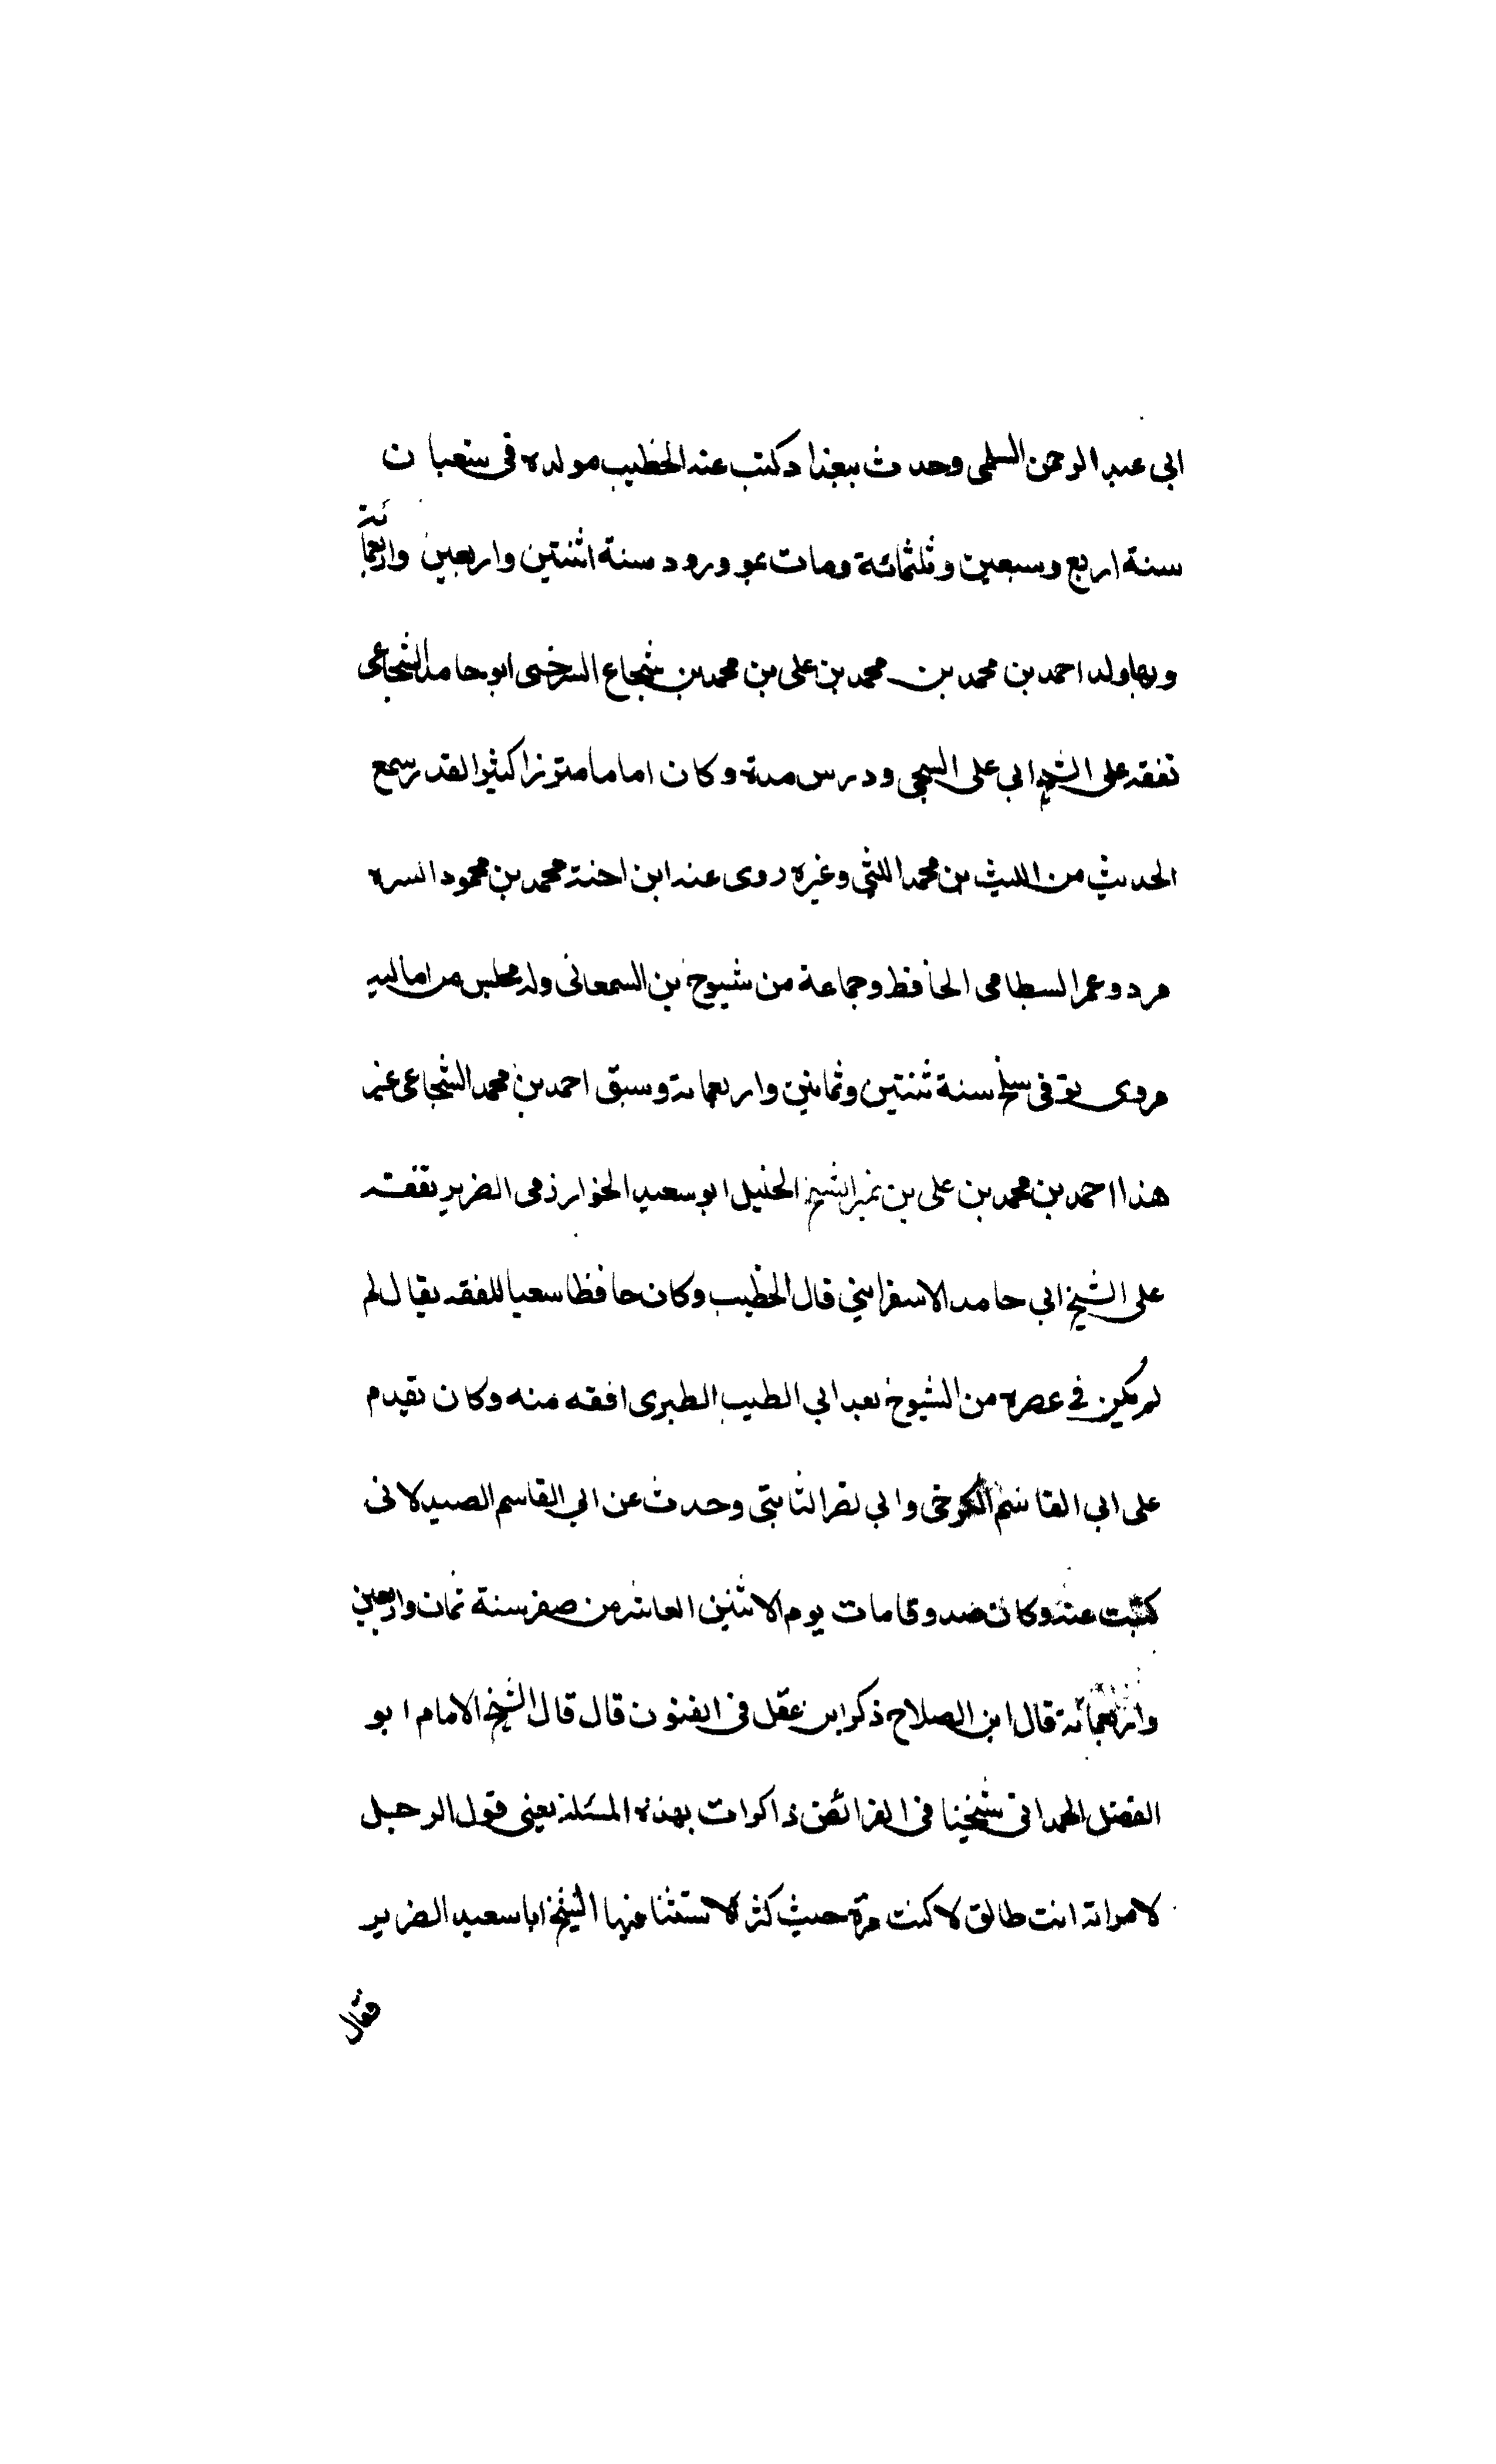 ابى عبد الرحمن السلمى وحدث ببغداد كتب عنه الخطيب مولده فى شعبان
سنة اربع وسبعين وثلثمائة ومات بمرورود سنة اثنتين واربعين واربعمائة
وبها ولد احمد بن محمد بن محمد بن على بن محمد بن شجاع السرخسى ابو حامد الشجاعى
تفقه على الشيخ ابى على السنجى ودرس مدة وكان اماما مبرزا كبير القدر سمع
الحديث من الليث بن محمد الليثى وغيره روى عنه ابن اخته محمد بن محمود السره
مرد وعمر البسطامى الحافظ وجماعة من شيوخ بن السمعانى وله مجلس من اماليه
مروى توفى سلخ سنة ثنتين وثمانين واربعماية وسبق احمد بن محمد الشجاعى غير
هذا احمد بن محمد بن على بن نمير الشيخ الجليل ابو سعيد الخوارزمى الضرير تفقه
على الشيخ ابى حامد الاسفراينى قال الخطيب وكان حافظا سعيا للفقه يقال لم
لم يكن فى عصره من الشيوخ بعد ابى الطيب الطبرى افقه منه وكان يقدم
على ابى القاسم الكرخى وابى نصر الثابتى وحدث عن ابى القاسم الصيدلانى
كتبت عنه وكان صدوقا مات يوم الاثنين العاشر من صفر سنة ثمان واربعين
واربعمائة قال ابن الصلاح ذكر ابن عقيل فى الفنون قال قال الشيخ الامام ابو
الفضل الهمدانى شيخنا فى الفرائض ذاكرات بهذه المسئلة يعنى قول الرجل
لامراته انت طالق لا كنت مرة حيث كثر الاستثنا فيها الشيخ ابا سعيد الضرير
فقال